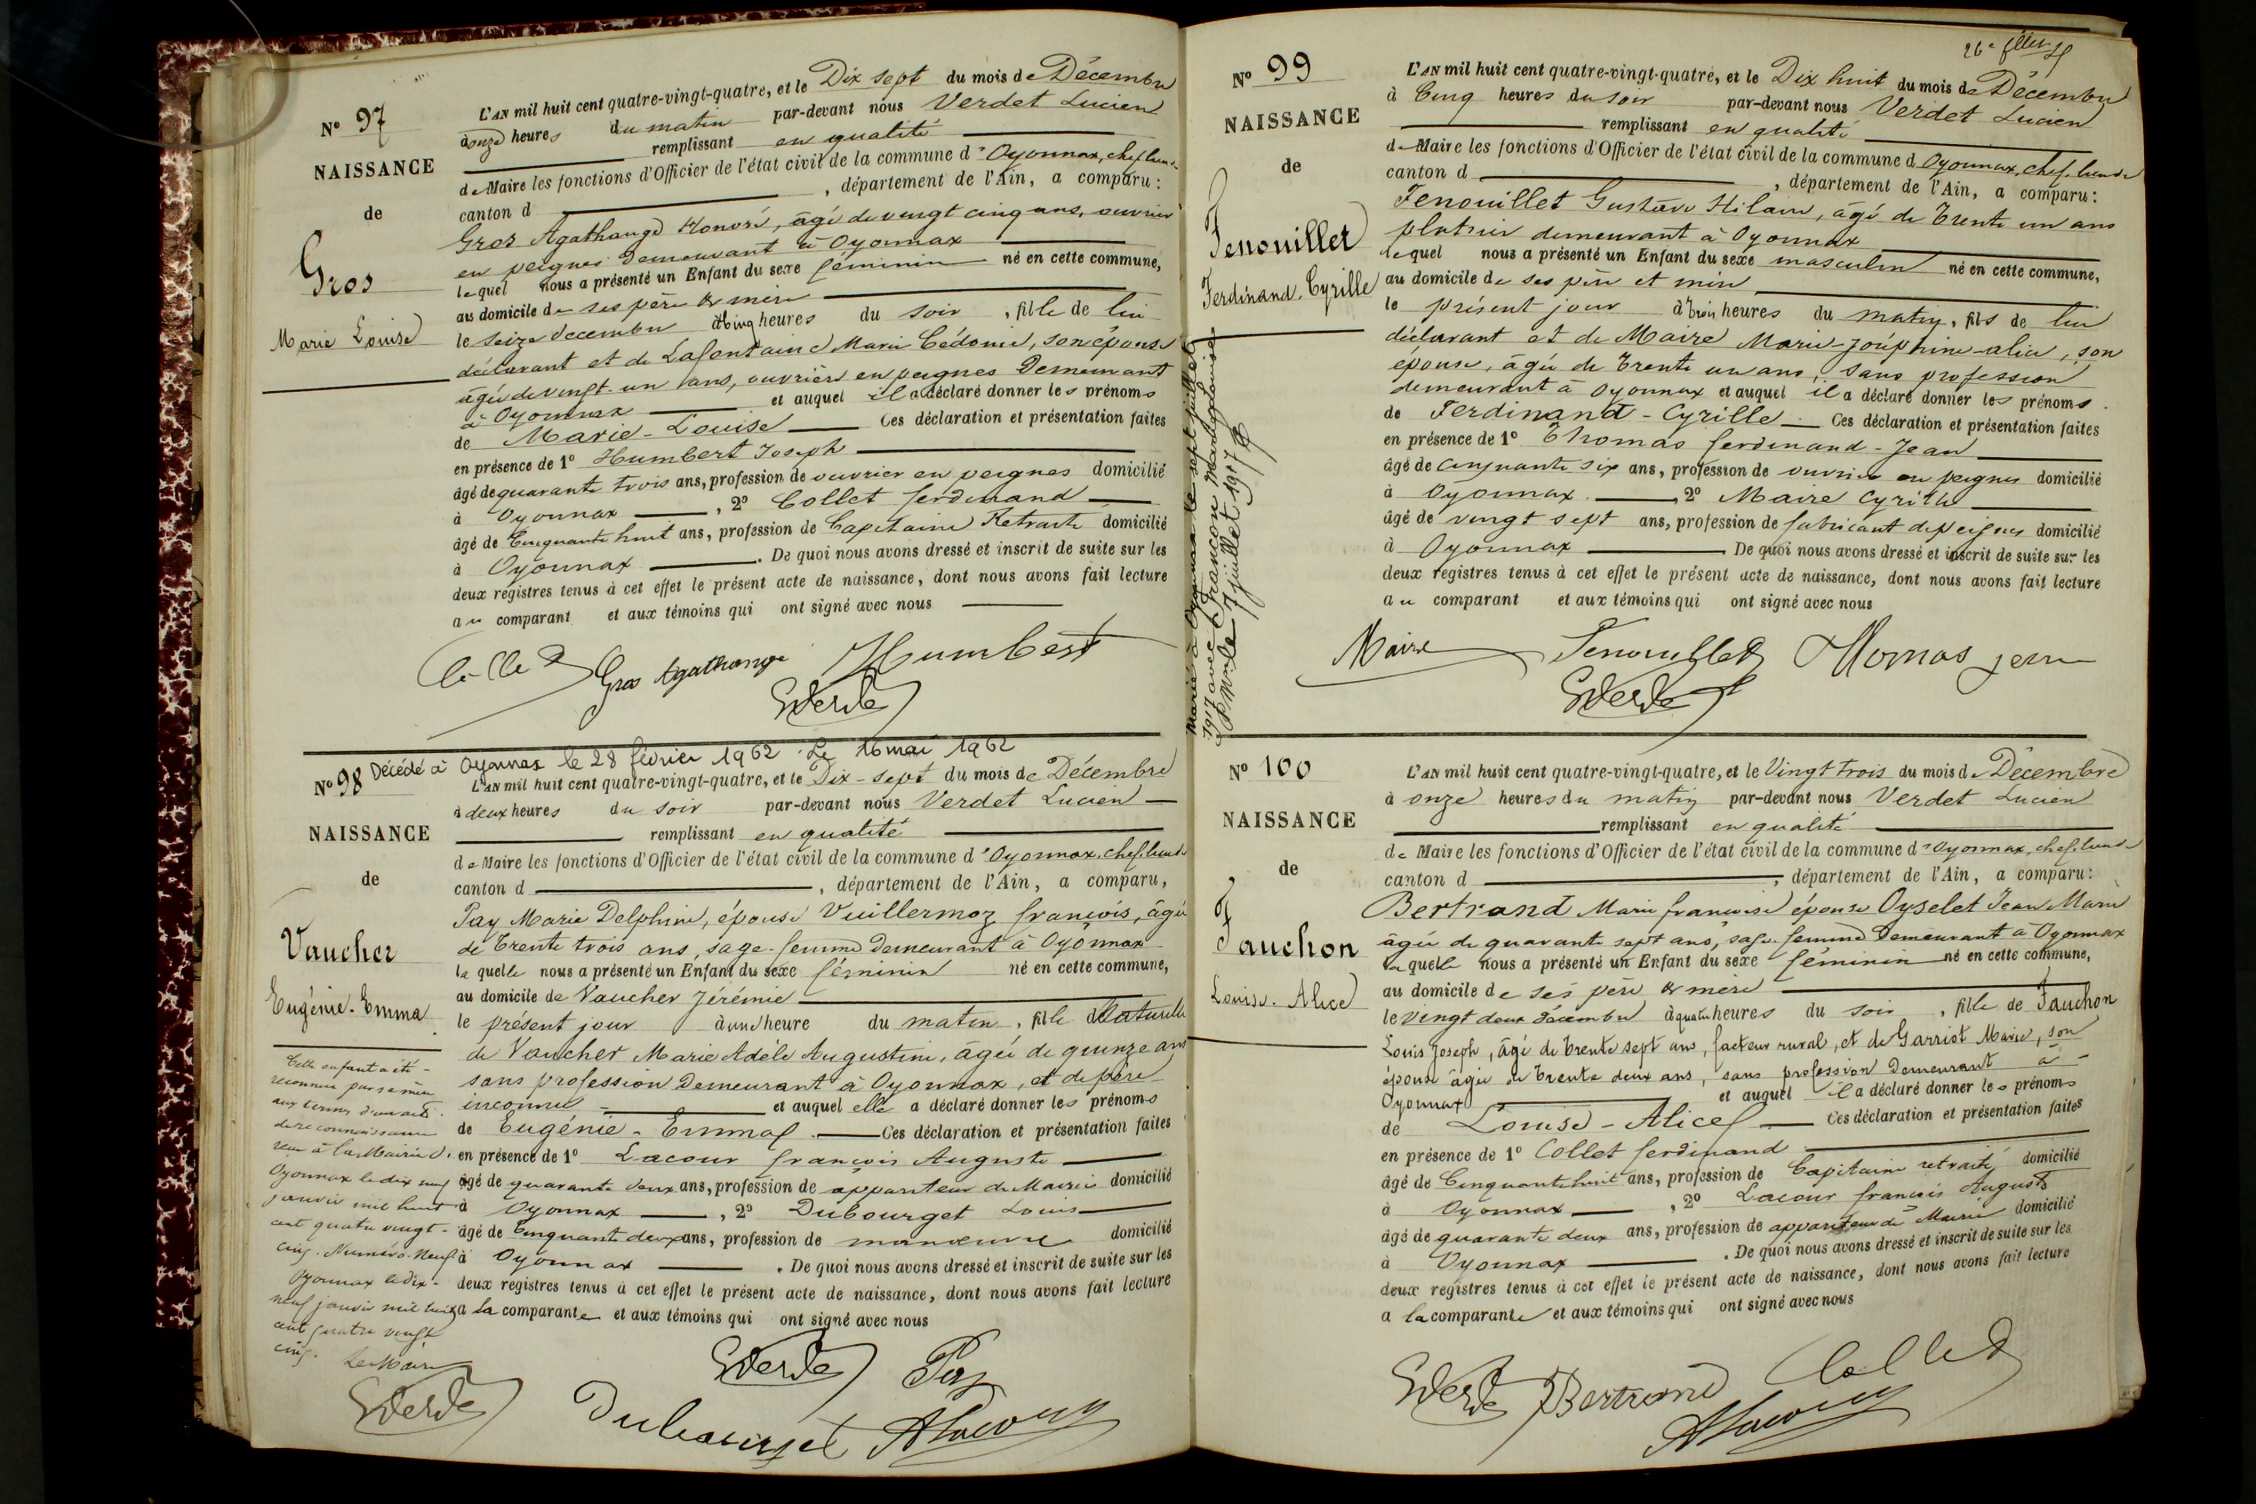 Nº 97
NAISSANCE
de
Gros
Marie Louise
L'AN mil huit cent quatre-vingt-quatre, et le Dix sept du mois de Décembre
à onze heures du matin par-devant nous Verdet Lucien
remplissant en qualité
de Maire les fonctions d'Officier de l'état civil de la commune d'Oyonnax, chef lieu de
canton d , département de l'Ain, a comparu :
Gros Agathange Honoré, âgé de vingt cinq ans, ouvrier
en peignes demeurant à Oyonnax
lequel nous a présenté un Enfant du sexe féminin né en cette commune,
au domicile de ses père & mère
le seize décembre à cinq heures du soir , fille de lui
déclarant et de Lafontaine Marie Cédonie, son épouse
âgée de vingt-un ans, ouvrière en peignes Demeurant
à Oyonnax et auquel il a déclaré donner les prénoms
de Marie-Louise Ces déclaration et présentation faites
en présence de 1º Humbert Joseph
âgé de quarante trois ans, profession de ouvrier en peignes domicilié
à Oyonnax , 2º Collet ferdinand
âgé de Cinquante huit ans, profession de Capitaine Retraité domicilié
à Oyonnax . De quoi nous avons dressé et inscrit de suite sur les
deux registres tenus à cet effet le présent acte de naissance, dont nous avons fait lecture
au comparant et aux témoins qui ont signé avec nous
Collet Gros Agathange Humbert
Verdet
Décédé à Oyonnax le 28 février 1962. Le 16 mai 1962
Nº 98
NAISSANCE
de
Vaucher
Eugénie-Emma
Cette enfant a été
reconnue par sa mère
aux termes d'un acte
de reconnaissance
reçu à la Mairie d'
Oyonnax le dix neuf
janvier mil huit
cent quatre vingt-
cinq. Numéro Neuf
Oyonnax le dix-
neuf janvier mil huit
cent quatre vingt
cinq. Le Maire
Verdet
L'AN mil huit cent quatre-vingt-quatre, et le Dix-sept du mois de Décembre
à deux heures du soir par-devant nous Verdet Lucien
remplissant en qualité
de Maire les fonctions d'Officier de l'état civil de la commune d'Oyonnax, chef lieu de
canton d , département de l'Ain, a comparu,
Pay Marie Delphine, épouse Vuillermoz françois, âgée
de trente trois ans, sage-femme Demeurant à Oyonnax
laquelle nous a présenté un Enfant du sexe féminin né en cette commune,
au domicile de Vaucher Jérémie
le présent jour à une heure du matin , fille Naturelle
de Vaucher Marie Adèle Augustine, âgée de quinze ans
sans profession Demeurant à Oyonnax, et de père
inconnu et auquel elle a déclaré donner les prénoms
de Eugénie-Emma Ces déclaration et présentation faites
en présence de 1º Lacour françois Auguste
âgé de quarante deux ans, profession de appariteur de Mairie domicilié
à Oyonnax , 2º Dubourget Louis
âgé de Cinquante deux ans, profession de manœuvre domicilié
à Oyonnax . De quoi nous avons dressé et inscrit de suite sur les
deux registres tenus à cet effet le présent acte de naissance, dont nous avons fait lecture
a la comparante et aux témoins qui ont signé avec nous
Verdet Pay
Dubourget ALacour
Nº 99
NAISSANCE
de
Fenouillet
Ferdinand-Cyrille
Marié à Oyonnax le sept juillet
1917 avec Françon Marie Louise
7 juillet 1917
L'AN mil huit cent quatre-vingt-quatre, et le Dix huit du mois de Décembre
à Cinq heures du soir par-devant nous Verdet Lucien
remplissant en qualité
de Maire les fonctions d'Officier de l'état civil de la commune d'Oyonnax, chef lieu de
canton d , département de l'Ain, a comparu :
Fenouillet Gustave Hilaire, âgé de trente un ans
platrier demeurant à Oyonnax
lequel nous a présenté un Enfant du sexe masculin né en cette commune,
au domicile de ses père et mère
le présent jour à trois heures du matin, fils de lui
déclarant et de Maire Marie-Joséphine-alice, son
épouse, âgée de trente un ans, sans profession
demeurant à Oyonnax et auquel il a déclaré donner les prénoms
de Ferdinand-Cyrille Ces déclaration et présentation faites
en présence de 1º Thomas ferdinand-Jean
âgé de cinquante six ans, profession de ouvrier en peignes domicilié
à Oyonnax , 2º Maire Cyrille
âgé de vingt sept ans, profession de fabricant de peignes domicilié
à Oyonnax De quoi nous avons dressé et inscrit de suite sur les
deux registres tenus à cet effet le présent acte de naissance, dont nous avons fait lecture
au comparant et aux témoins qui ont signé avec nous
Maire Fenouillet Thomas jean
Verdet
Nº 100
NAISSANCE
de
Fauchon
Louise-Alice
L'AN mil huit cent quatre-vingt-quatre, et le Vingt trois du mois de Décembre
à onze heures du matin par-devant nous Verdet Lucien
remplissant en qualité
de Maire les fonctions d'Officier de l'état civil de la commune d'Oyonnax, chef lieu de
canton d , département de l'Ain, a comparu :
Bertrand Marie françoise épouse Oyselet Jean Marie
âgée de quarante sept ans, sage-femme Demeurant à Oyonnax
laquelle nous a présenté un Enfant du sexe féminin né en cette commune,
au domicile de ses père & mère
le vingt deux décembre à quatre heures du soir , fille de Fauchon
Louis Joseph, âgé de trente sept ans, facteur rural, et de Garriot Marie, son
épouse âgée de trente deux ans, sans profession Demeurant à
Oyonnax et auquel il a déclaré donner les prénoms
de Louise-Alice Ces déclaration et présentation faites
en présence de 1º Collet ferdinand
âgé de Cinquante huit ans, profession de Capitaine retraité domicilié
à Oyonnax , 2º Lacour françois Auguste
âgé de quarante deux ans, profession de appariteur de Mairie domicilié
à Oyonnax . De quoi nous avons dressé et inscrit de suite sur les
deux registres tenus à cet effet le présent acte de naissance, dont nous avons fait lecture
a la comparante et aux témoins qui ont signé avec nous
Verdet Bertrand Collet
ALacour